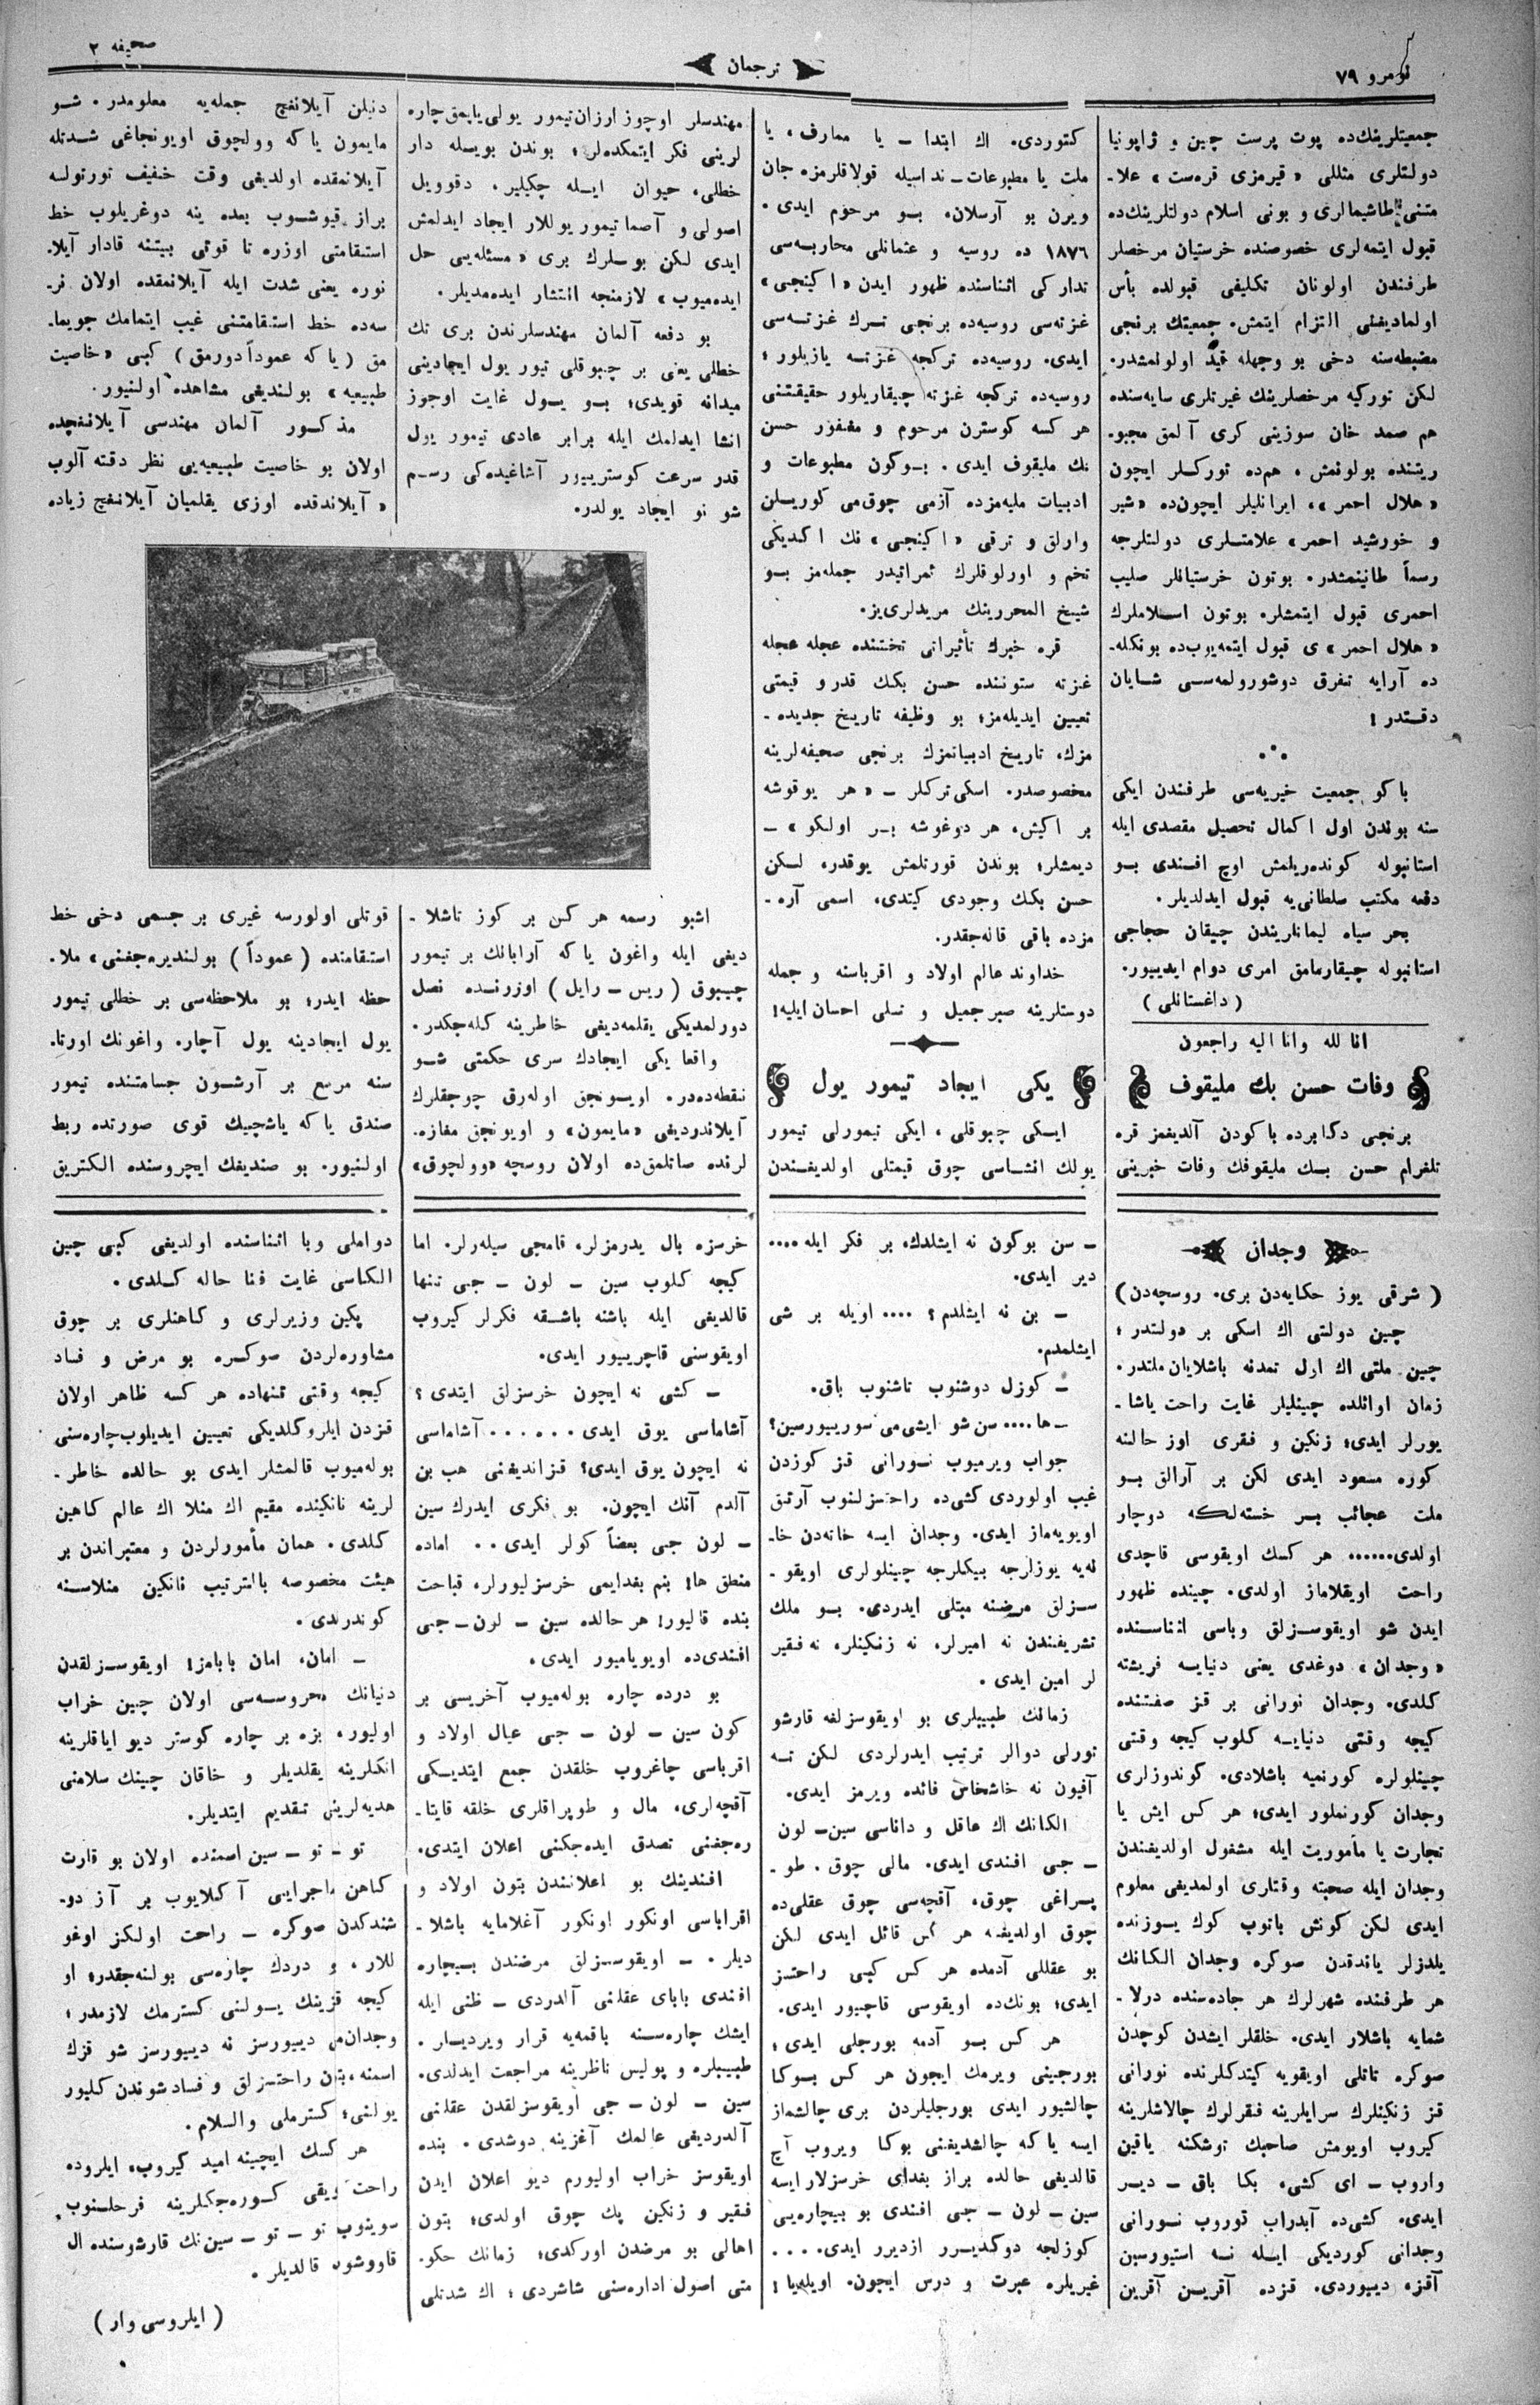 نومرو ٧٩
ترجمان
صحيفه ٢
جمعيتلرينك‌ده پوت پرست چين و ژاپونيا
دولتلرى مثللى «قيرمزى قره‌ست» علا-
متنى طاشيمالارى و بونى اسلام دولتلرينك‌ده
قبول ايتمه‌لرى خصوصنده خرستيان مرخصلر
طرفندن اولونان تكليفى قبولده بأس
اولماديغنى التزام ايتمش. جمعيتك برنجى
مضبطه‌سنه دخى بو وجهله قيد اولولمشدر.
لكن توركيه مرخصلرينك غيرتلرى سايه‌سنده
هم صمد خان سوزينى كرى آلمق مجبو-
ريتنده بولونمش، هم‌ده توركلر ايچون
«هلال احمر»، ايرانليلر ايچون‌ده «شير
و خورشيد احمر» علامتلرى دولتلرجه
رسماً طانينمشدر. بوتون خرستيانلر صليب
احمرى قبول ايتمشلر. بوتون اسلاملرك
«هلال احمر»ى قبول ايتمه‌يوب‌ده بونكله-
ده آرايه تفرق دوشورولمه‌سى شايان
دقتدر!
باكو جمعيت خيريه‌سى طرفندن ايكى
سنه بوندن اول اكمال تحصيل مقصدى ايله
استانبوله كونده‌ريلمش اوچ افندى بو
دفعه مكتب سلطانى‌يه قبول ايدلديلر.
بحر سياه ليمانلريندن چيقان حجاجى
استانبوله چيقارمامق امرى دوام ايدييور.
(داغستانلى)
انا لله وانا اليه راجعون
وفات حسن بك مليقوف
برنجى دكابرده باكودن آلديغمز قره
تلغرام حسن بك مليقوفك وفات خبرينى
كتوردى. اك ابتدا - يا معارف، يا
ملت يا مطبوعات - نداسيله قولاقلرمزه جان
ويرن بو آرسلان، بو مرحوم ايدى.
١٨٧٦ ده روسيه و عثمانلى محاربه‌سى
تداركى اثناسنده ظهور ايدن «اكينجى»
غزته‌سى روسيه‌ده برنجى ترك غزته‌سى
ايدى. روسيه‌ده تركجه غزته يازيلور؛
روسيه‌ده تركجه غزته چيقاريلور حقيقتنى
هر كسه كوسترن مرحوم و مغفور حسن
بك مليقوف ايدى. بوكون مطبوعات و
ادبيات مليه‌مزده آزمى چوق‌مى كوريلن
وارلق و ترقى «اكينجى» نك اكديكى
تخم و اورلوقلرك ثمراتيدر جمله‌مز بو
شيخ المحررينك مريدلرى‌يز.
قره خبرك تأثيراتى تختنده عجله عجله
غزته ستوننده حسن بكك قدر و قيمتى
تعيين ايديله‌مز؛ بو وظيفه تاريخ جديده-
مزك، تاريخ ادبياتمزك برنجى صحيفه‌لرينه
مخصوصدر. اسكى تركلر - «هر يوقوشه
بر اكيش، هر دوغوشه بر اولكو» -
ديمشلر؛ بوندن قورتلمش يوقدر، لكن
حسن بكك وجودى كيتدى، اسمى آره-
مزده باقى قاله‌جقدر.
خداوند عالم اولاد و اقرباسنه و جمله
دوستلرينه صبر جميل و تسلى احسان ايليه!
يكى ايجاد تيمور يول
ايسكى چبوقلى، ايكى تيمورلى تيمور
يولك انشاسى چوق قيمتلى اولديغندن
مهندسلر اوچوز ارزان تيمور يولى ياپمق چاره
لرينى فكر ايتمكده‌لر؛ بوندن بويله دار
خطلى، حيوان ايله چكيلير، دقوويل
اصولى و آصما تيمور يوللار ايجاد ايدلمش
ايدى لكن بوسلرك برى «مسئله‌يى حل
ايده‌ميوب» لازمنجه انتشار ايده‌مديلر.
بو دفعه آلمان مهندسلرندن برى تك
خطلى يعنى بر چبوقلى تيور يول ايجادينى
ميدانه قويدى؛ بو يول غايت اوجوز
انشا ايدلمك ايله برابر عادى تيمور يول
قدر سرعت كوسترييور آشاغيده‌كى رسم
شو نو ايجاد يولدر.
دنبلن آيلانغچ جمله‌يه معلومدر. شو
مايمون ياكه وولچوق اويونجاغى شدتله
آيلانمقده اولديغى وقت خفيف تورتولسه
براز قيوشوب بعده ينه دوغريلوب خط
استقامتى اوزره تا قوتى بيتنه قادار آيلا-
نوره يعنى شدت ايله آيلانمقده اولان نر-
سه‌ده خط استقامتنى غيب ايتمامك جويما-
مق (ياكه عموداً دورمق) كبى «خاصيت
طبيعيه» بولنديغى مشاهده اولنيور.
مذكور آلمان مهندسى آيلانغچده
اولان بو خاصيت طبيعيه‌يى نظر دقته آلوب
«آيلاندقده اوزى يقلميان آيلانغچ زياده
اشبو رسمه هر كس بر كوز تاشلا-
ديغى ايله واغون ياكه آرابانك بر تيمور
چيبوق (ريس - رايل) اوزرنده نصل
دورلمديكى يقلمه‌ديغى خاطرينه كله‌جكدر.
واقعا يكى ايجادك سرى حكمتى شو
نقطه‌ده‌در. اويونجق اوله‌رق چوجقلرك
آيلاندرديغى «مايمون» و اويونجق مغازه-
لرنده صاتلمق‌ده اولان روسچه «وولچوق»
قوتلى اولورسه غيرى بر جسمى دخى خط
استقامتده (عموداً) بولنديره‌جغنى» ملا-
حظه ايدر؛ بو ملاحظه‌سى بر خطلى تيمور
يول ايجادينه يول آچار. واغونك اورتا-
سنه مربع بر آرشون جسامتنده تيمور
صندق ياكه ياشچيك قوى صورتده ربط
اولنيور. بو صنديغك ايچروسنده الكتريق
وجدان
(شرقى يوز حكايه‌دن برى. روسچه‌دن)
چين دولتى اك اسكى بر دولتدر؛
چين ملتى اك اول تمدنه باشلايان ملتدر.
زمان اوائلده چينليلر غايت راحت ياشا-
يورلر ايدى؛ زنكين و فقرى اوز حالنه
كوره مسعود ايدى لكن بر آرالق بو
ملت عجائب بر خسته‌لكه دوچار
اولدى...... هر كسك اويقوسى قاچدى
راحت اويقلاماز اولدى. چينده ظهور
ايدن شو اويقوسزلق وباسى اثناسنده
«وجدان» دوغدى يعنى دنيايه فريشته
كلدى. وجدان نورانى بر قز صفتنده
كيجه وقتى دنيايه كلوب كيجه وقتى
چينلولره كورنميه باشلادى. كوندوزلرى
وجدان كورنملور ايدى؛ هر كس ايش يا
تجارت يا مأموريت ايله مشغول اولديغندن
وجدان ايله صحبته وقتلرى اولمديغى معلوم
ايدى لكن كونش باتوب كوك يوزنده
يلدزلر ياندقدن صوكره وجدان الكانك
هر طرفنده شهرلرك هر جاده‌سنده درلا-
شمايه باشلار ايدى. خلقلر ايشدن كوچدن
صوكره تاتلى اويقويه كيتدكلرنده نورانى
قز زنكينلرك سرايلرينه فقرلرك چالاشلرينه
كيروب اويومش صاحبك توشكنه ياقين
واروب - اى كشى، بكا باق - دير
ايدى. كشى‌ده آبدراب قوروب نورانى
وجدانى كورديكى ايله نه استيورسين
آقزه ديبوردى. قزده آقرين آقرين
- سن بوكون نه ايشلدك، بر فكر ايله....
دير ايدى.
- بن نه ايشلدم؟ .... اويله بر شى
ايشلمدم.
- كوزل دوشنوب تاشنوب باق.
- ها.... سن شو ايشى‌مى سورييورسين؟
جواب ويرميوب نورانى قز كوزدن
غيب اولوردى كشى‌ده راحتسزلنوب آرتق
اويويه‌ماز ايدى. وجدان ايسه خانه‌دن خا-
نه‌يه يوزلرجه بيكلرجه چينلولرى اويقو-
سزلق مرضنه مبتلى ايدردى. بو ملك
تشريفندن نه اميرلر، نه زنكينلر، نه فقير
لر امين ايدى.
زمانك طبيبلرى بو اويقوسزلغه قارشو
تورلى دوالر ترتيب ايدرلردى لكن نه
آفيون نه خاشخاش فائده ويرمز ايدى.
الكانك اك عاقل و داناسى سين - لون
- جى افندى ايدى. مالى چوق، طو-
پراغى چوق، آقچه‌سى چوق عقلى‌ده
چوق اولديغنه هر كس قائل ايدى لكن
بو عقللى آدمده هر كس كبى راحتسز
ايدى؛ بونك‌ده اويقوسى قاچييور ايدى.
هر كس بو آدمه بورجلى ايدى؛
بورجينى ويرمك ايچون هر كس بوكا
چالشيور ايدى بورجليلردن برى چالشماز
ايسه ياكه چالشديغنى بوكا ويروب آچ
قالديغى حالده براز بغداى خرسزلار ايسه
سين - لون - جى افندى بو بيچاره‌يى
كوزلجه دوكديرر ازديرر ايدى....
غيريلره عبرت و درس ايچون. اويله‌يا!
خرسزه بال يدرمزلر، قامجى سيله‌رلر. اما
كيجه كلوب سين - لون - جى تنها
قالديغى ايله باشنه باشقه فكرلر كيروب
اويقوسنى قاچرييور ايدى.
- كشى نه ايچون خرسزلق ايتدى؟
آشاماسى يوق ايدى...... آشاماسى
نه ايچون يوق ايدى؟ قزانديغنى هب بن
آلدم آنك ايچون. بو فكرى ايدرك سين
- لون جى بعضاً كولر ايدى.. اماده
منطق ها! بنم بغدايمى خرسزليورلر، قباحت
بنده قاليور! هر حالده سين - لون - جى
افندى‌ده اويويامبور ايدى.
بو درده چاره بوله‌ميوب آخريسى بر
كون سين - لون - جى عيال اولاد و
اقرباسى چاغروب خلقدن جمع ايتديكى
آقچه‌لرى، مال و طوپراقلرى خلقه قايتا-
ره‌جغنى تصدق ايده‌جكنى اعلان ايتدى.
افندينك بو اعلانندن بتون اولاد و
اقراباسى اونكور اونكور آغلامايه باشلا-
ديلر. - اويقوسزلق مرضندن بيچاره
افندى باباى عقلنى آلدردى - ظنى ايله
ايشك چاره‌سنه باقمه‌يه قرار ويرديلر.
طبيبلره و پوليس ناظرينه مراجعت ايدلدى.
سين - لون - جى اويقوسزلقدن عقلنى
آلدرديغى عالمك آغزينه دوشدى. بنده
اويقوسز خراب اوليورم ديو اعلان ايدن
فقير و زنكين پك چوق اولدى؛ بتون
اهالى بو مرضدن اوركدى؛ زمانك حكو-
متى اصول اداره‌سنى شاشردى؛ اك شدتلى
دواملى وبا اثناسنده اولديغى كبى چين
الكاسى غايت فنا حاله كلدى.
پكين وزيرلرى و كاهنلرى بر چوق
مشاوره‌لردن صوكره بو مرض و فساد
كيجه وقتى تنهاده هر كسه ظاهر اولان
قزدن ايلروكلديكى تعيين ايديلوب چاره‌سنى
بوله‌ميوب قالمشلر ايدى بو حالده خاطر-
لرينه نانكينده مقيم اك منلا اك عالم كاهين
كلدى. همان مأمورلردن و معتبراندن بر
هيئت مخصوصه بالترتيب نانكين منلاسنه
كوندرلدى.
- امان، امان بابامز! اويقوسزلقدن
دنيانك محروسه‌سى اولان چين خراب
اوليور، بزه بر چاره كوستر ديو اياقلرينه
انكلرينه يقلديلر و خاقان چينك سلامنى
هديه‌لرينى تقديم ايتديلر.
تو - تو - سين اسمنده اولان بو قارت
كاهن ماجرايى آكلايوب بر آز دو-
شندكدن صوكره - راحت اولكز اوغو
للار، و دردك چاره‌سى بولنه‌جقدر؛ او
كيجه قزينك يولنى كسترمك لازمدر؛
وجدان‌مى ديبورسز نه ديبورسز شو قزك
اسمنه، بتون راحتسزلق و فساد شوندن كليور
يولنى؛ كسترملى والسلام.
هر كسك ايچينه اميد كيروب، ايلروده
راحت اويقى كوره‌جكلرينه فرحلنوب
سوينوب تو - تو - سين‌نك قارشوسنده ال
قاووشوه قالديلر.
(ايلروسى وار)